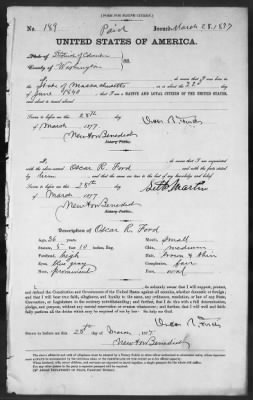 [FORM FOR NATIVE CITIZEN.]
No. 189 Paid Issued March 28, 1877
UNITED STATES OF AMERICA.
State of District of Columbia
County of Washington } ss:
do swear that I was born in the
State of Massachusetts on or about the 22
of June 1840; that I am a NATIVE AND LOYAL CITIZEN OF THE UNITED STATES,
and about to travel abroad.
Sworn to before me this 28th day
of March 1877
Oscar R. Ford
Notary Public.
I am acquainted
with the above-named Oscar R. Ford and with the facts stated
by him, and that the same are true to the best of my knowledge and belief.
Sworn to before me this 28th day
of March 1877
Seth Martin
Notary Public.
Description of Oscar R. Ford
Age, 36 years, Mouth, small
Stature, 5 feet 10 inches, Eng. Chin, medium
Forehead, high Hair, brown & thin
Eyes, blue gray Complexion, fair
Nose, prominent Face, oval
do solemnly swear that I will support, protect,
and defend the Constitution and Government of the United States against all enemies, whether domestic or foreign;
and that I will bear true faith, allegiance, and loyalty to the same, any ordinance, resolution, or law of any State,
Convention, or Legislature to the contrary notwithstanding; and further, that I do this with a full determination,
pledge, and purpose, without any mental reservation or evasion whatsoever; and further, that I will well and faith-
fully perform all the duties which may be required of me by law: So help me God.
Sworn to before me this 28th day of March 1877
Notary Public.